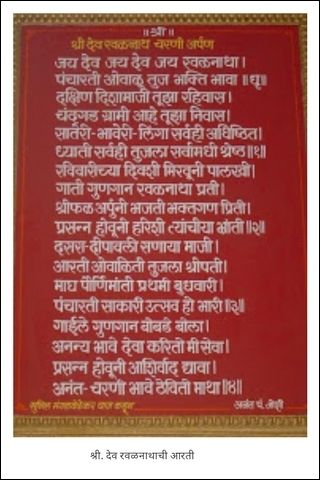 ॥श्री॥
श्री देव रवळनाथ चरणी अर्पण
जय देव जय देव जय रवळनाथा।
पंचारती ओवाळू तुज भक्ति भावा ॥धृ॥
दक्षिण दिशामाजी तुझा रहिवास।
चंदगड ग्रामी आहे तुझा निवास।
सातेरी-भावेरी-लिंगा सर्वही अधिष्ठित।
ध्याती सर्वही तुजला सर्वामधी श्रेष्ठ॥१॥
रविवारीच्या दिवशी मिरवूनी पालखी।
गाती गुणगान रवळनाथा प्रती।
श्रीफळ अर्पुनी भजती भक्तगण प्रिती।
प्रसन्न होवूनी हरिशी त्यांचीया भ्रांती॥२॥
दसरा-दीपावली सणाया माजी।
आरती ओवाळिती तुजला श्रीपती।
माघ पौर्णिमांती प्रथमी बुधवारी।
पंचारती साकारी उत्सव हो भारी॥३॥
गाईले गुणगान बोबडे बोला।
अनन्य भावे देवा करितो मी सेवा।
प्रसन्न होवूनी आशिर्वाद द्यावा।
अनंत-चरणी भावे ठेविती माथा॥४॥
सुनिल यांज कडून
अनंत पं.
श्री. देव रवळनाथाची आरती